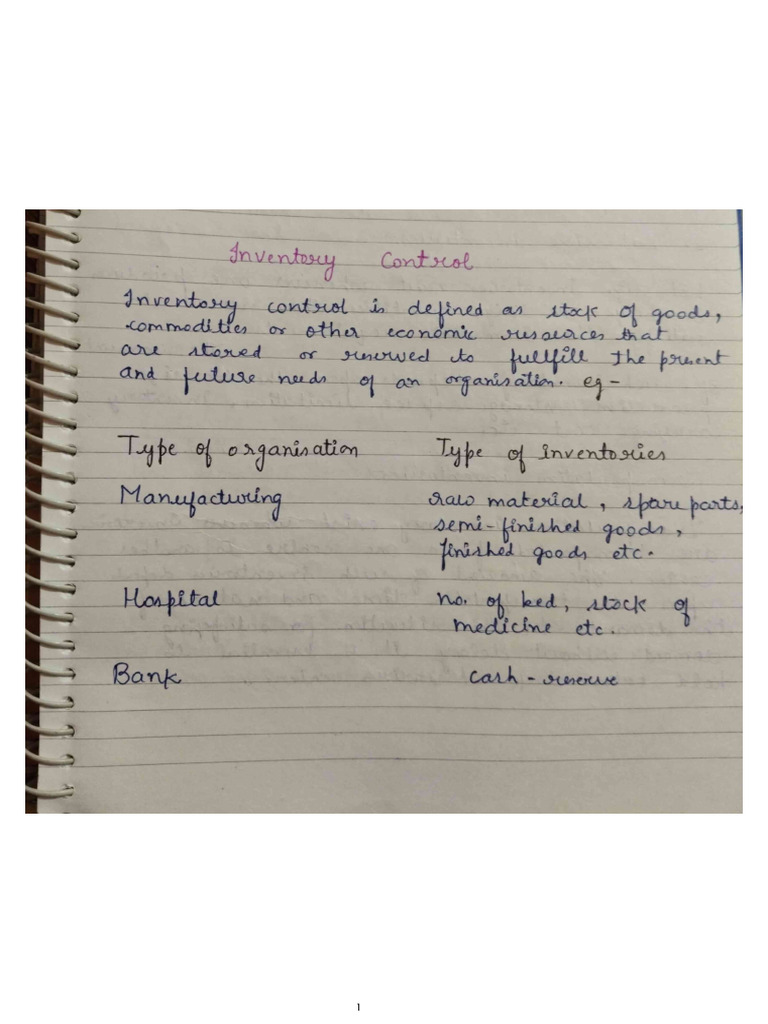 Inventory Control
Inventory control is defined as stock of goods,
commodities or other economic resources that
are stored or reserved to fullfill the present
and future needs of an organisation. eg -
Type of organisation Type of inventories
Manufacturing raw material, spare parts,
semi-finished goods,
finished goods etc.
Hospital no. of bed, stock of
medicine etc.
Bank cash - reserve
1